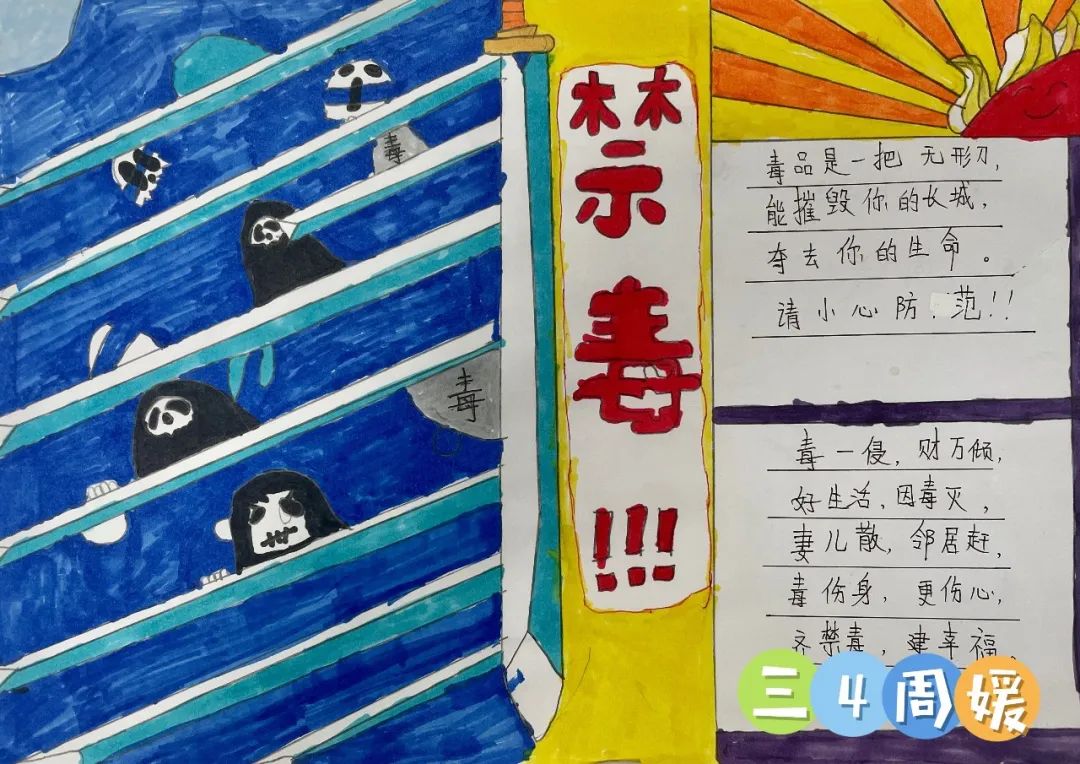 毒
毒
禁毒!!!
毒品是一把无形刀,
能摧毁你的长城,
夺去你的生命。
请小心防范!!
毒一侵,财万倾,
好生活,因毒灭,
妻儿散,邻居赶,
毒伤身,更伤心,
齐禁毒,建幸福。
三4周媛